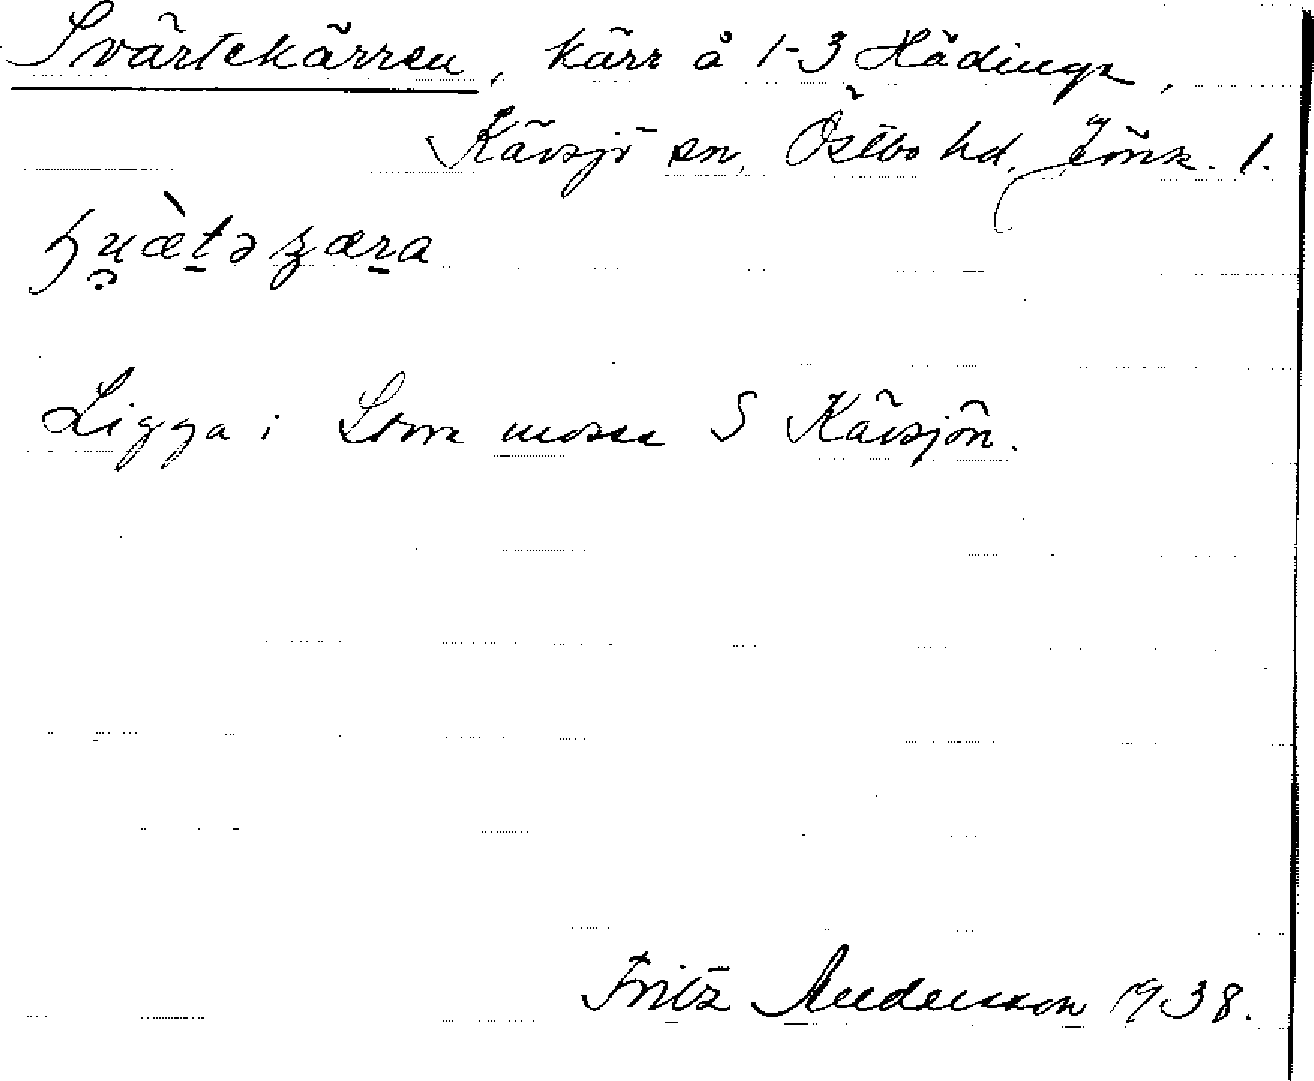 Svärtekärren, kärr å 1-3 Hädinge,
Kävsjö sn, Östbo hd, Jönk. l.
Ligga i Stora mosse S Kävsjön.
Fritz Andersson 1938.